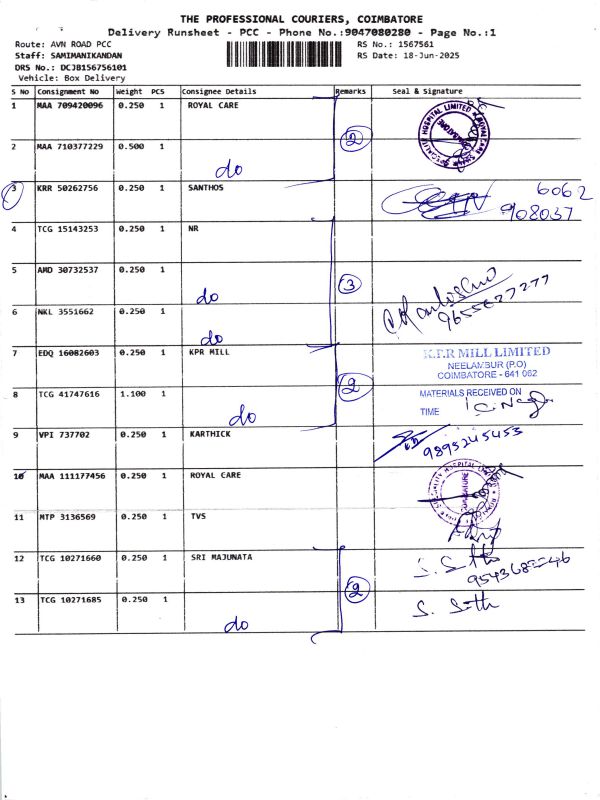 THE PROFESSIONAL COURIERS, COIMBATORE
Delivery Runsheet - PCC - Phone No.:9047080280 - Page No.:1
Route: AVN ROAD PCC RS No.: 1567561
Staff: SAMIMANIKANDAN RS Date: 18-Jun-2025
DRS No.: DCJB156756101
Vehicle: Box Delivery
S No Consignment No Weight PCS Consignee Details Remarks Seal & Signature
1 MAA 709420096 0.250 1 ROYAL CARE
2 MAA 710377229 0.500 1 do 2
3 KRR 50262756 0.250 1 SANTHOS 6062
908037
4 TCG 15143253 0.250 1 NR
5 AMD 30732537 0.250 1 do 3
6 NKL 3551662 0.250 1 do 9655627277
7 EDQ 16082603 0.250 1 KPR MILL K.P.R MILL LIMITED
NEELAMBUR (P.O)
COIMBATORE - 641 062
8 TCG 41747616 1.100 1 do 2 MATERIALS RECEIVED ON
TIME
9 VPI 737702 0.250 1 KARTHICK 9895245453
10 MAA 111177456 0.250 1 ROYAL CARE
11 MTP 3136569 0.250 1 TVS
12 TCG 10271660 0.250 1 SRI MAJUNATA 2
13 TCG 10271685 0.250 1 do